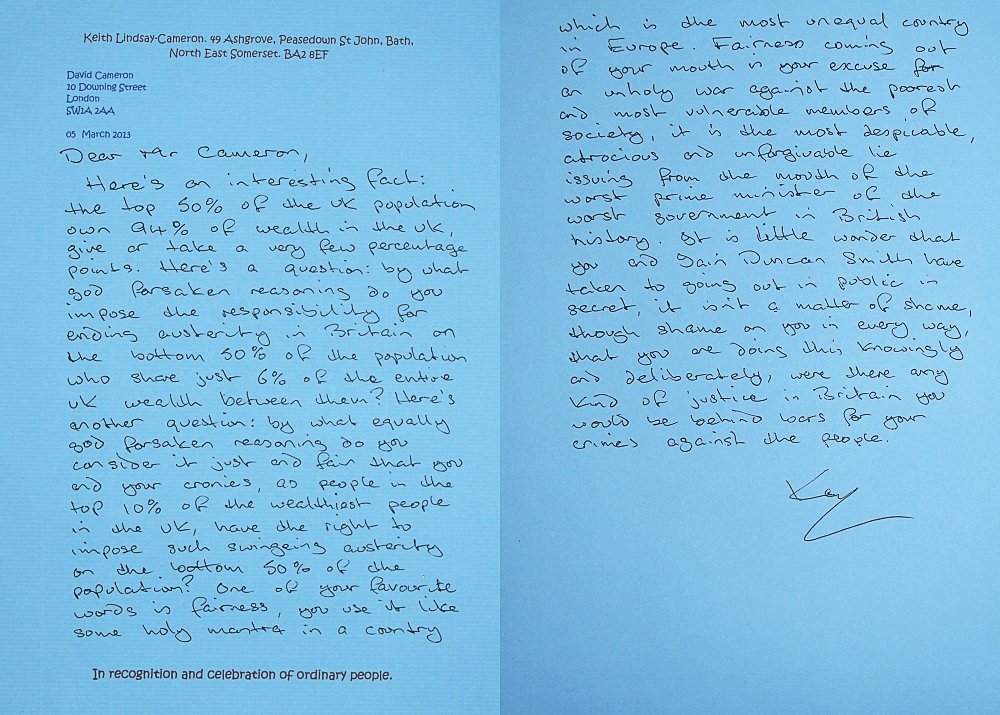 Keith Lindsay-Cameron. 49 Ashgrove, Peasedown St John, Bath,
North East Somerset. BA2 8EF
David Cameron
10 Downing Street
London
SW1A 2AA
05 March 2013
Dear Mr Cameron,
Here's an interesting fact:
the top 50% of the UK population
own 94% of wealth in the UK,
give or take a very few percentage
points. Here's a question: by what
god forsaken reasoning do you
impose the responsibility for
ending austerity in Britain on
the bottom 50% of the population
who share just 6% of the entire
UK wealth between them? Here's
another question: by what equally
god forsaken reasoning do you
consider it just and fair that you
and your cronies, as people in the
top 10% of the wealthiest people
in the UK, have the right to
impose such swingeing austerity
on the bottom 50% of the
population? One of your favourite
words is fairness, you use it like
some holy mantra in a country
In recognition and celebration of ordinary people.
which is the most unequal country
in Europe. Fairness coming out
of your mouth in your excuse for
an unholy war against the poorest
and most vulnerable members of
society, it is the most despicable,
atrocious and unforgivable lie
issuing from the mouth of the
worst prime minister of the
worst government in British
history. It is little wonder that
you and Iain Duncan Smith have
taken to going out in public in
secret, it isn't a matter of shame,
though shame on you in every way,
that you are doing this knowingly
and deliberately, were there any
kind of justice in Britain you
would be behind bars for your
crimes against the people.